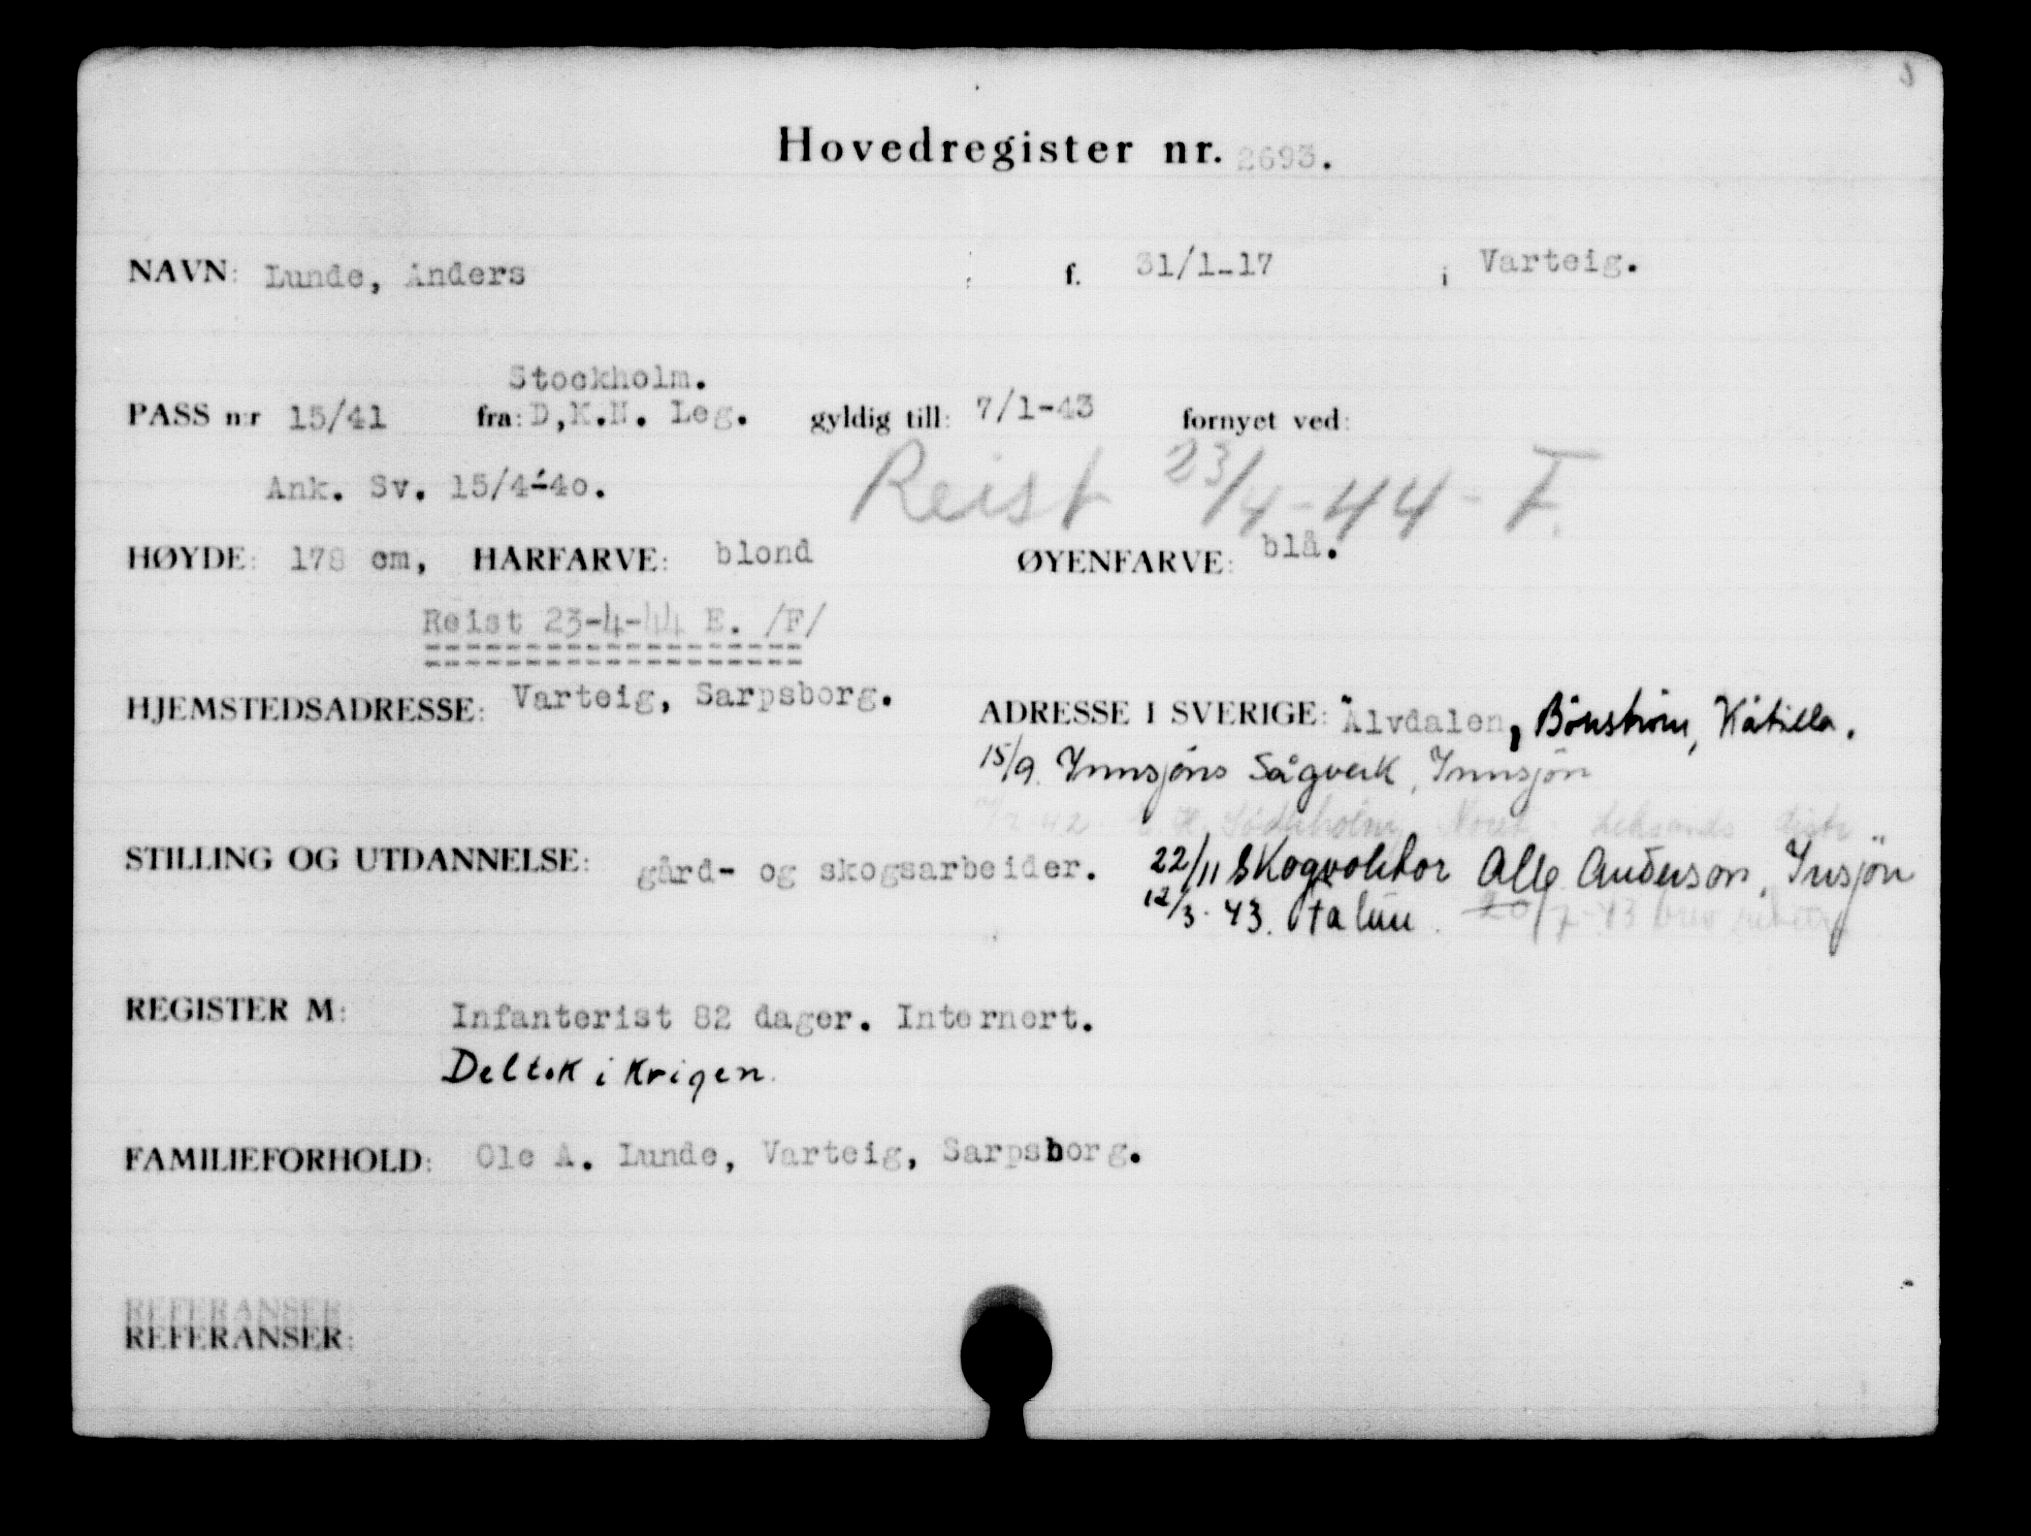 Hovedregister nr. 2693.
NAVN: Lunde, Anders f. 31/1-17 i Varteig.
Stockholm.
PASS nr 15/41 fra: D,K.N. Leg. gyldig till: 7/1-43 fornyet ved:
Ank. Sv. 15/4-40. Reist 23/4-44 - F.
HØYDE: 178 cm, HÅRFARVE: blond ØYENFARVE: blå.
Reist 23-4-44 E. /F/
HJEMSTEDSADRESSE: Varteig, Sarpsborg. ADRESSE I SVERIGE: Älvdalen,
15/9. Innsjöns Sågverk, Innsjön
STILLING OG UTDANNELSE: gård- og skogsarbeider. 22/11 Anderson, Insjön
12/3-43.
REGISTER M: Infanterist 82 dager. Internert.
Deltok i Krigen.
FAMILIEFORHOLD: Ole A. Lunde, Varteig, Sarpsborg.
REFERANSER
REFERANSER: